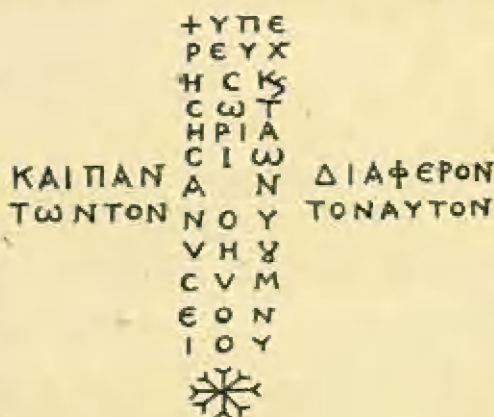 +ΥΠΕ
ΡΕΥΧ
ΗϹΚϚ
ϹωΤ
ΗΡΙΑ
ϹΙω
ΚΑΙΠΑΝ ΑΝ ΔΙΑΦΕΡΟΝ
ΤωΝΤΟΝ ΝΟΥ ΤΟΝΑΥΤΟΝ
VΗȢ
ϹVΜ
ЄΟΝ
ΙΟΥ